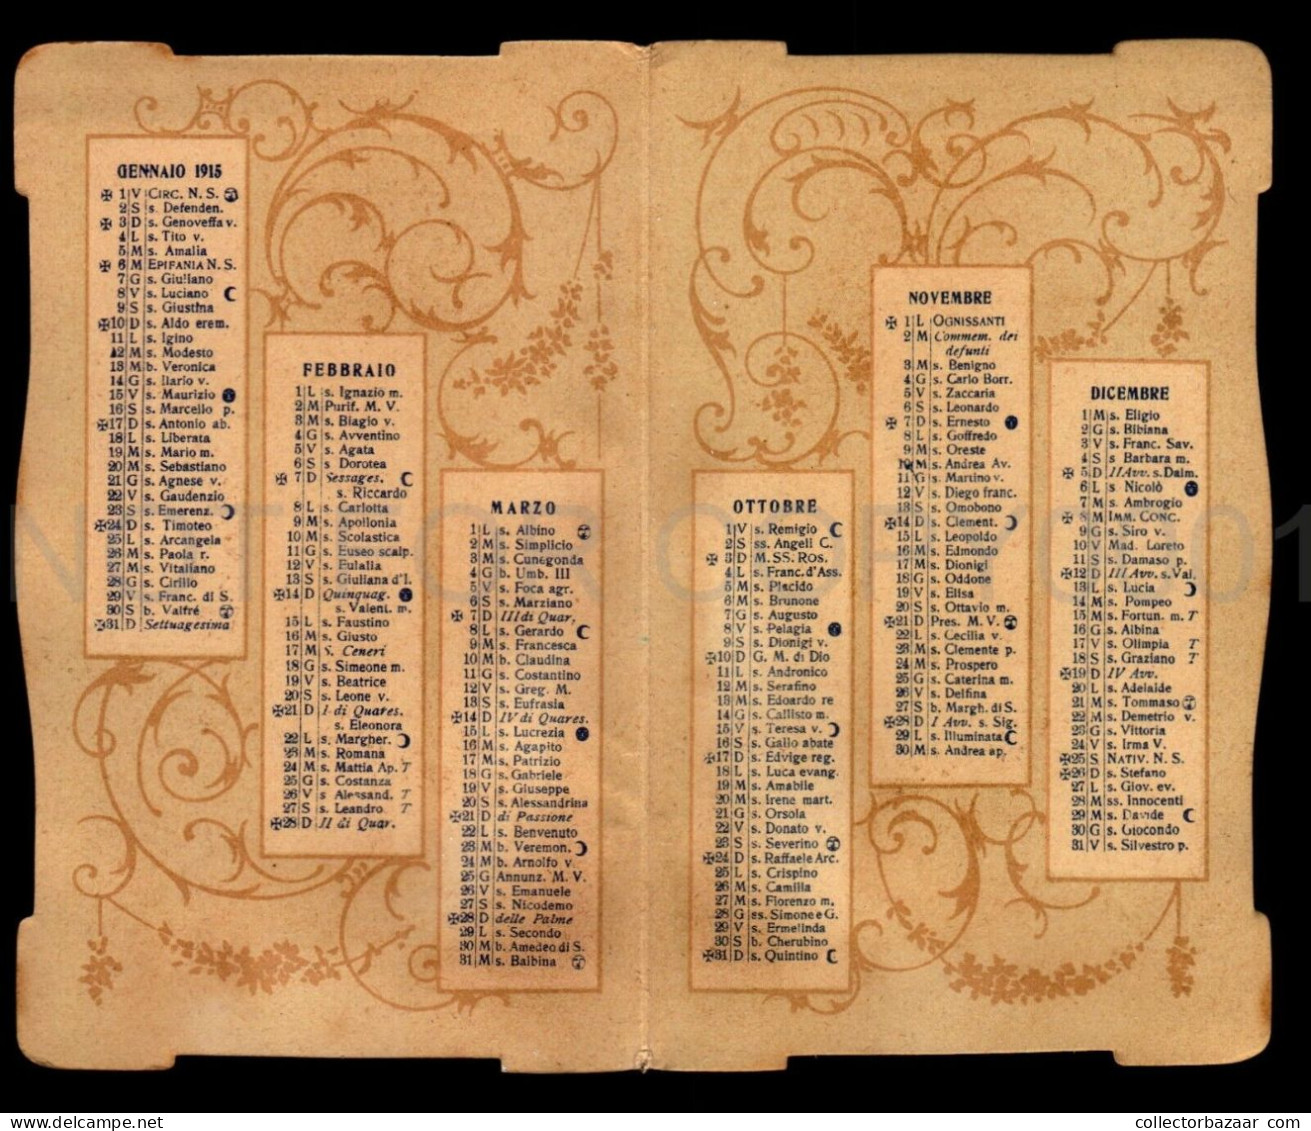 GENNAIO 1915
✠ 1 V CIRC. N. S.
2 S s. Defenden.
✠ 3 D s. Genoveffa v.
4 L s. Tito v.
5 M s. Amalia
✠ 6 M EPIFANIA N. S.
7 G s. Giuliano
8 V s. Luciano
9 S s. Giustina
✠10 D s. Aldo erem.
11 L s. Igino
12 M s. Modesto
13 M b. Veronica
14 G s. Ilario v.
15 V s. Maurizio
16 S s. Marcello p.
✠17 D s. Antonio ab.
18 L s. Liberata
19 M s. Mario m.
20 M s. Sebastiano
21 G s. Agnese v.
22 V s. Gaudenzio
23 S s. Emerenz.
✠24 D s. Timoteo
25 L s. Arcangela
26 M s. Paola r.
27 M s. Vitaliano
28 G s. Cirillo
29 V s. Franc. di S.
30 S b. Valfré
✠31 D Settuagesima
FEBBRAIO
1 L s. Ignazio m.
2 M Purif. M. V.
3 M s. Biagio v.
4 G s. Avventino
5 V s. Agata
6 S s Dorotea
✠ 7 D Sessages.
s. Riccardo
8 L s. Carlotta
9 M s. Apollonia
10 M s. Scolastica
11 G s. Euseo scalp.
12 V s. Eulalia
13 S s. Giuliana d'I.
✠14 D Quinquag.
s. Valent. m.
15 L s. Faustino
16 M s. Giusto
17 M S. Ceneri
18 G s. Simeone m.
19 V s. Beatrice
20 S s. Leone v.
✠21 D I di Quares.
s. Eleonora
22 L s. Margher.
23 M s. Romana
24 M s. Mattia Ap. T
25 G s. Costanza
26 V s Alessand. T
27 S s. Leandro T
✠28 D II di Quar.
MARZO
1 L s. Albino
2 M s. Simplicio
3 M s. Cunegonda
4 G b. Umb. III
5 V s. Foca agr.
6 S s. Marziano
✠ 7 D III di Quar.
8 L s. Gerardo
9 M s. Francesca
10 M b. Claudina
11 G s. Costantino
12 V s. Greg. M.
13 S s. Eufrasia
✠14 D IV di Quares.
15 L s. Lucrezia
16 M s. Agapito
17 M s. Patrizio
18 G s. Gabriele
19 V s. Giuseppe
20 S s. Alessandrina
✠21 D di Passione
22 L s. Benvenuto
23 M b. Veremon.
24 M b. Arnolfo v.
25 G Annunz. M. V.
26 V s. Emanuele
27 S s. Nicodemo
✠28 D delle Palme
29 L s. Secondo
30 M b. Amedeo di S.
31 M s. Balbina
OTTOBRE
1 V s. Remigio
2 S ss. Angeli C.
✠ 3 D M. SS. ROS.
4 L s. Franc. d'Ass.
5 M s. Placido
6 M s. Brunone
7 G s. Augusto
8 V s. Pelagia
9 S s. Dionigi v.
✠10 D G. M. di Dio
11 L s. Andronico
12 M s. Serafino
13 M s. Edoardo re
14 G s. Callisto m.
15 V s. Teresa v.
16 S s. Gallo abate
✠17 D s. Edvige reg.
18 L s. Luca evang.
19 M s. Amabile
20 M s. Irene mart.
21 G s. Orsola
22 V s. Donato v.
23 S s. Severino
✠24 D s. Raffaele Arc.
25 L s. Crispino
26 M s. Camilla
27 M s. Fiorenzo m.
28 G ss. Simone e G.
29 V s. Ermelinda
30 S b. Cherubino
✠31 D s. Quintino
NOVEMBRE
✠ 1 L OGNISSANTI
2 M Commem. dei
defunti
3 M s. Benigno
4 G s. Carlo Borr.
5 V s. Zaccaria
6 S s. Leonardo
✠ 7 D s. Ernesto
8 L s. Goffredo
9 M s. Oreste
10 M s. Andrea Av.
11 G s. Martino v.
12 V s. Diego franc.
13 S s. Omobono
✠14 D s. Clement.
15 L s. Leopoldo
16 M s. Edmondo
17 M s. Dionigi
18 G s. Oddone
19 V s. Elisa
20 S s. Ottavio m.
✠21 D Pres. M. V.
22 L s. Cecilia v.
23 M s. Clemente p.
24 M s. Prospero
25 G s. Caterina m.
26 V s. Delfina
27 S b. Margh. di S.
✠28 D I Avv. s. Sig.
29 L s. Illuminata
30 M s. Andrea ap.
DICEMBRE
1 M s. Eligio
2 G s. Bibiana
3 V s. Franc. Sav.
4 S s Barbara m.
✠ 5 D II Avv. s. Dalm.
6 L s Nicolò
7 M s. Ambrogio
✠ 8 M IMM. CONC.
9 G s. Siro v.
10 V Mad. Loreto
11 S s. Damaso p.
✠12 D III Avv. s. Val.
13 L s. Lucia
14 M s. Pompeo
15 M s. Fortun. m. T
16 G s. Albina
17 V s. Olimpia T
18 S s. Graziano T
✠19 D IV Avv.
20 L s. Adelaide
21 M s. Tommaso
22 M s. Demetrio v.
23 G s. Vittoria
24 V s. Irma V.
✠25 S NATIV. N. S.
✠26 D s. Stefano
27 L s. Giov. ev.
28 M ss. Innocenti
29 M s. Davide
30 G s. Giocondo
31 V s. Silvestro p.
collectorbazaar.com